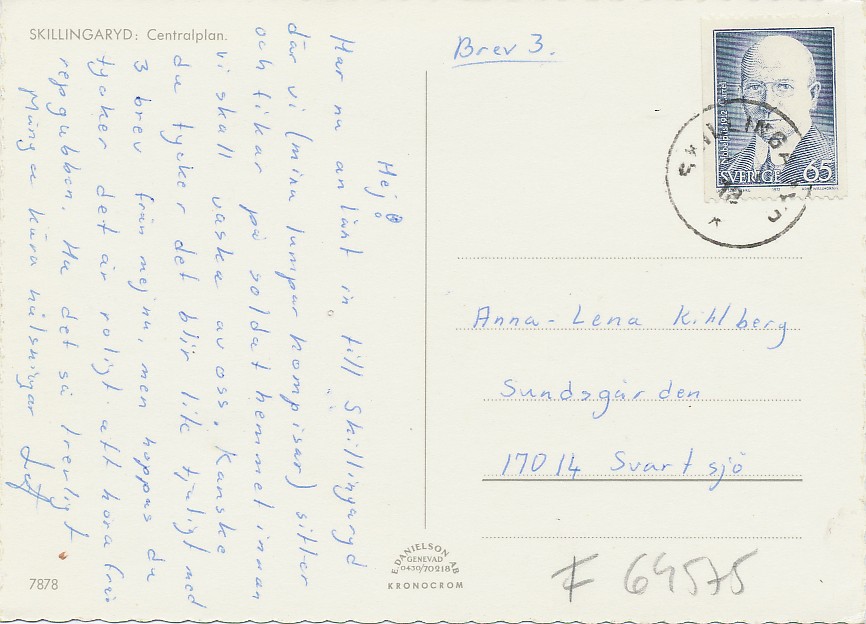 SKILLINGARYD: Centralplan.
Hej!
Har nu anlänt in till Skillingaryd
där vi (mina lumparkompisar) sitter
och fikar på soldathemmet innan
vi skall vaska av oss. Kanske
du tycker det blir lite tjatigt med
3 brev från mej nu, men hoppas du
tycker det är roligt att höra från
repgubben. Ha det så trevligt
Många kära hälsningar Leif
7878
E. DANIELSON AB
GENEVAD
0430/70218
KRONOCROM
Brev 3.
SVERIGE 65
SKILLINGARYD
Anna-Lena Kihlberg
Sundsgården
17014 Svartsjö
F 64575